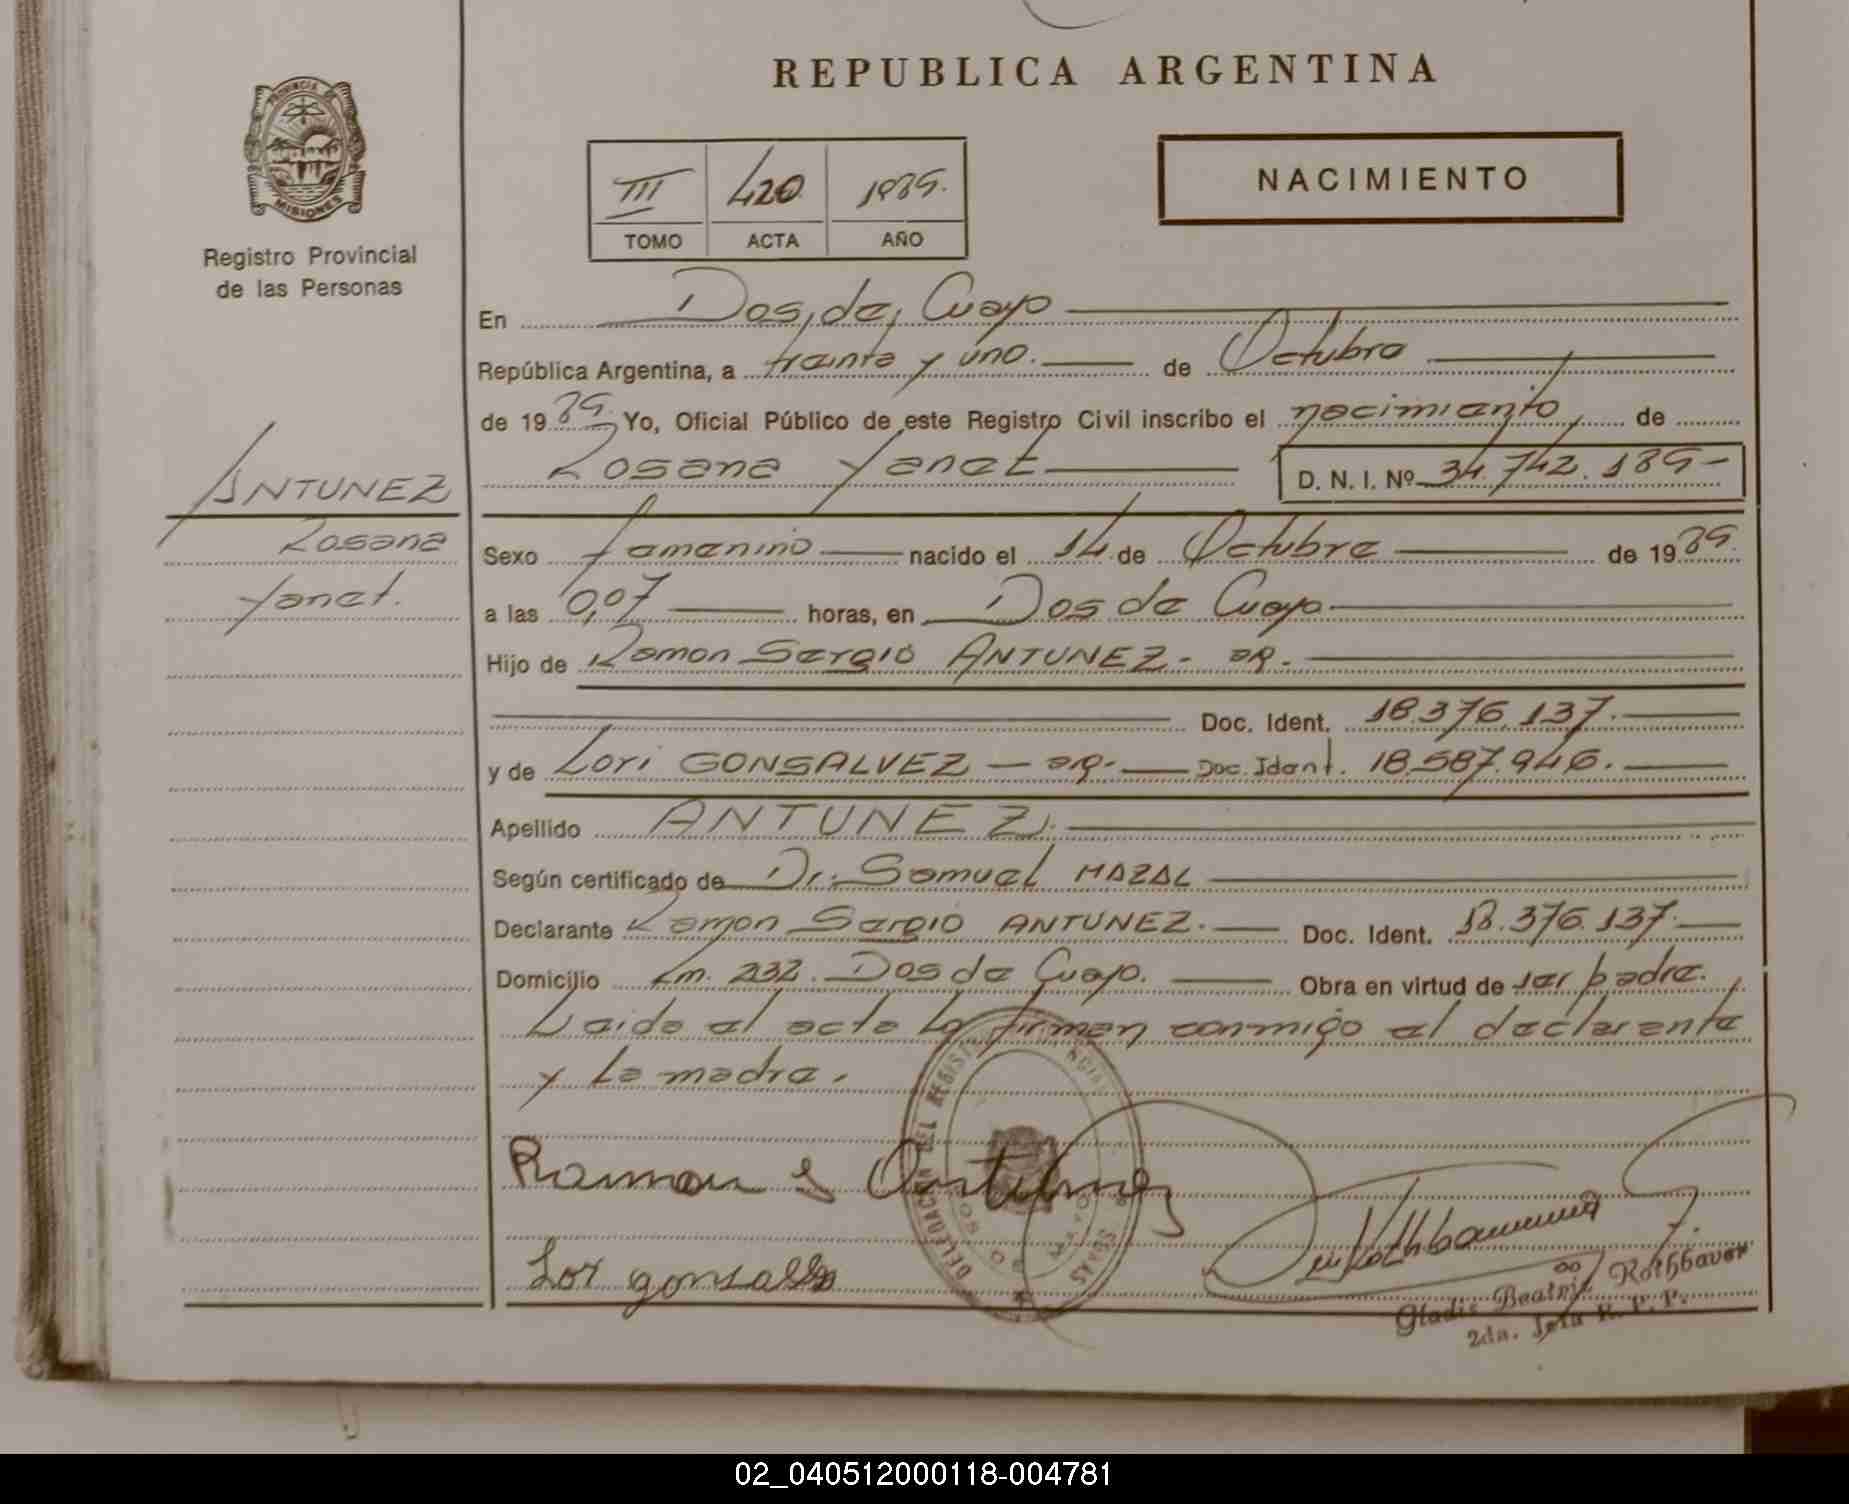 REPUBLICA ARGENTINA
PROVINCIA DE MISIONES
Registro Provincial
de las Personas
III 420 1989.
TOMO ACTA AÑO
NACIMIENTO
En Dos, de, Cuayo
República Argentina, a treinta y uno. de Octubre
de 1989. Yo, Oficial Público de este Registro Civil inscribo el nacimiento de
Rosana Yanet D. N. I. Nº 34.742.189-
ANTUNEZ
Rosana
Yanet.
Sexo femenino nacido el 14 de Octubre de 1989.
a las 0,07 horas, en Dos de Cuayo
Hijo de Ramon Sergio ANTUNEZ - ar.
Doc. Ident. 18.376.137.
y de Lori GONSALVEZ - ar. Doc. Ident. 18.587.946.
Apellido ANTUNEZ.
Según certificado de Dr. Samuel MAZAL
Declarante Ramon Sergio ANTUNEZ. Doc. Ident. 18.376.137.
Domicilio Km. 232. Dos de Cuayo. Obra en virtud de ser padre.
Leida el acta la firman conmigo el declarente
y la madre.
DELEGACION DEL REGISTRO
Ramon S Antunez
Lori gonsalves
Gladis Beatriz Rothbauer
2da. Jefa R. P. P.
02_040512000118-004781